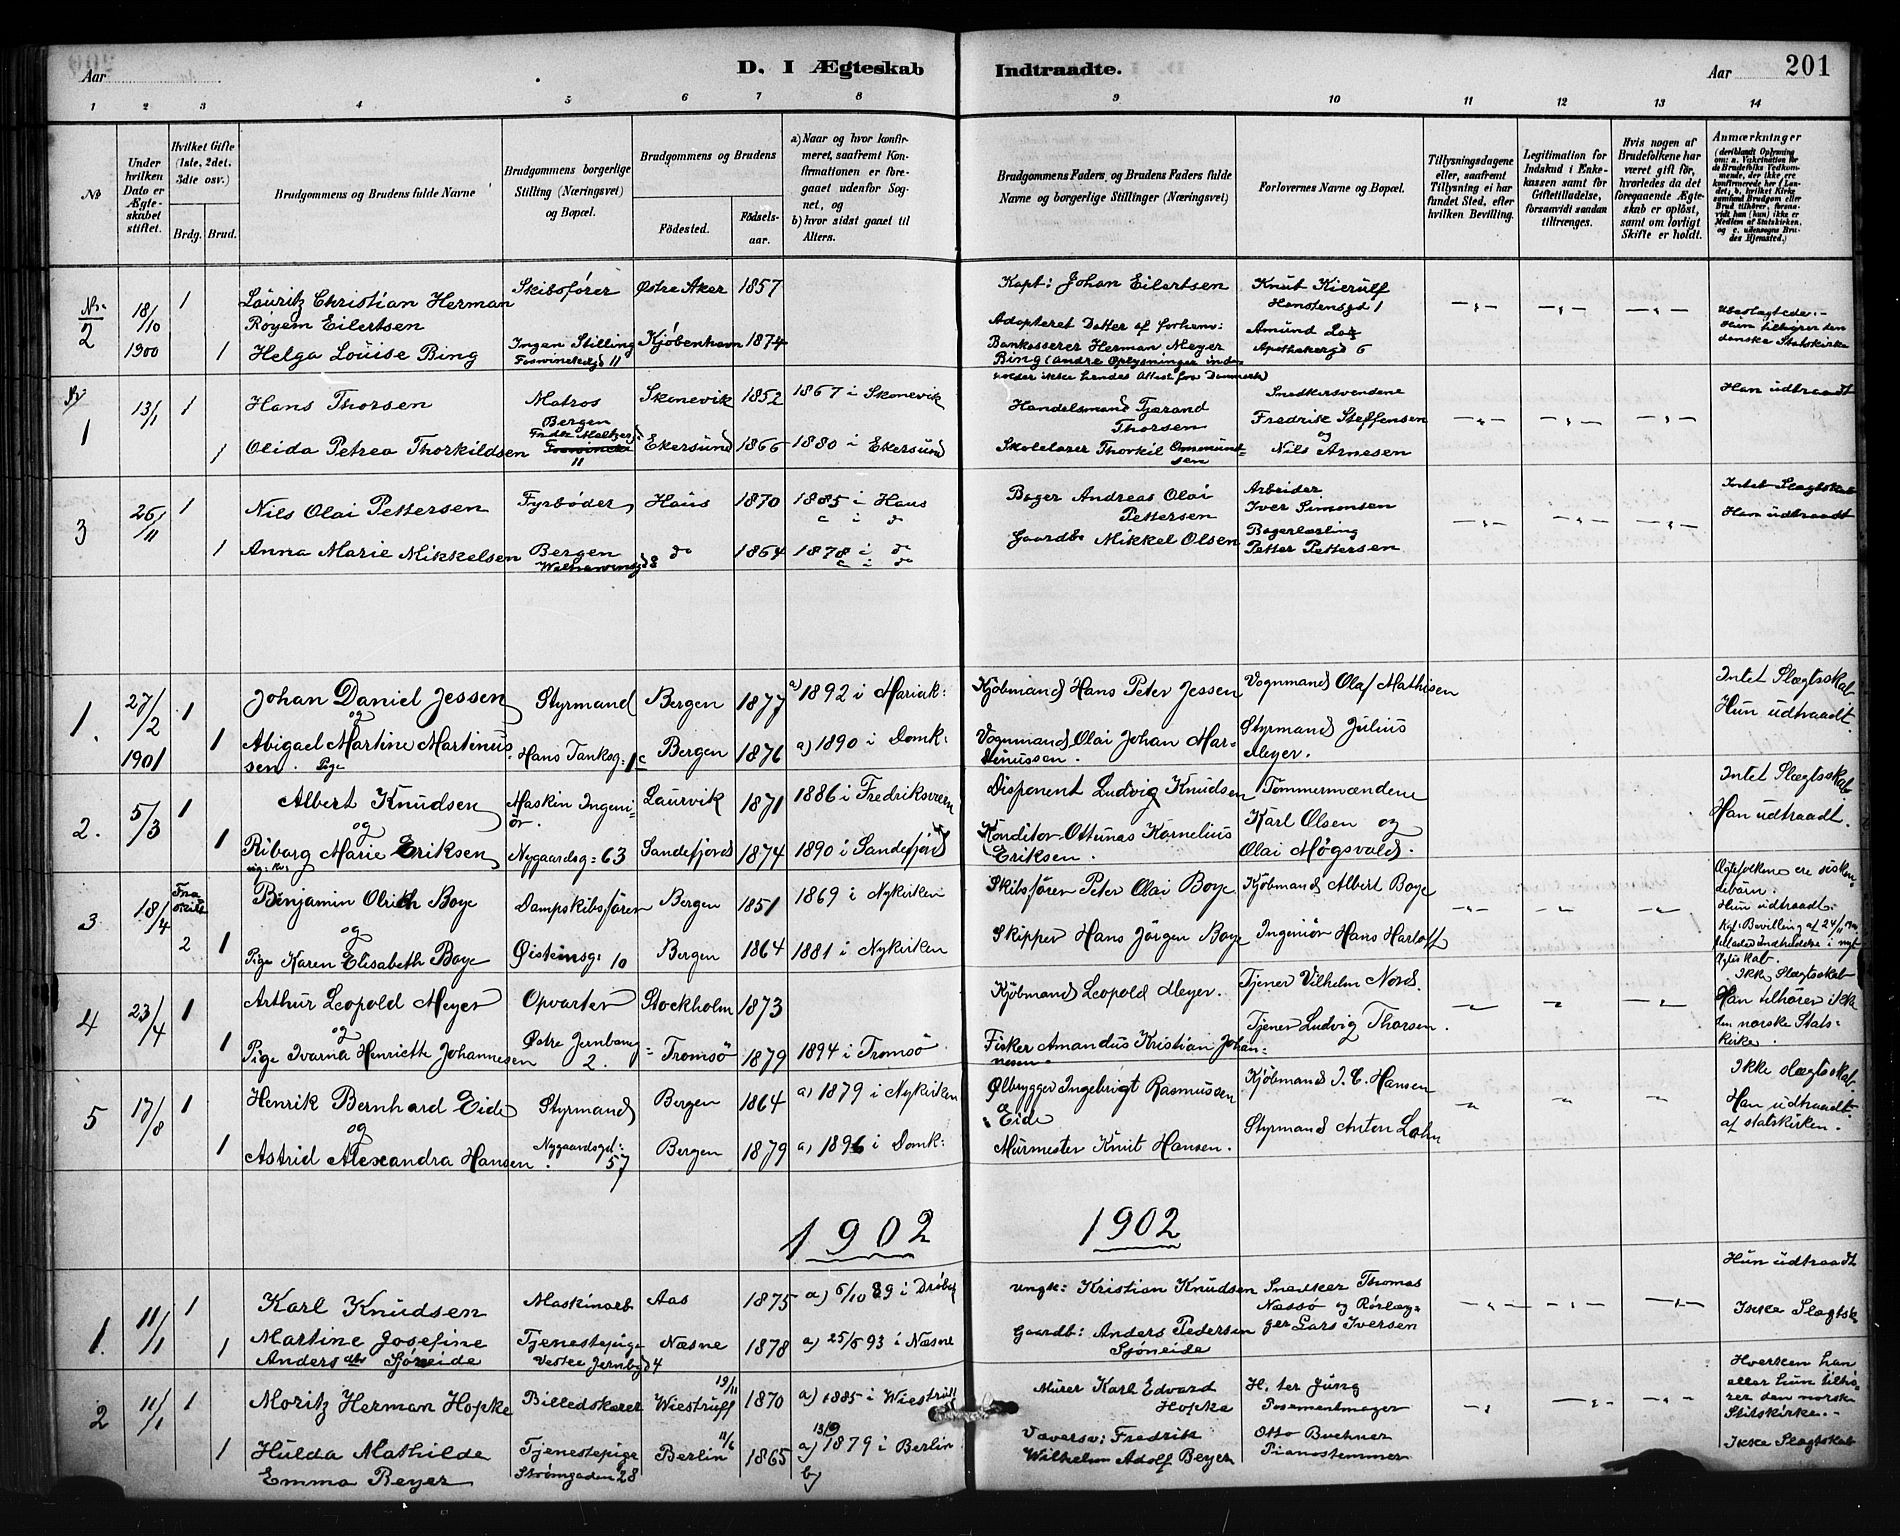 Aar
D. I Ægteskab
1 2 3 4 5 6 7 8
№
Under hvilken Dato er Ægteskabet stiftet.
Hvilket Gifte (1ste, 2det, 3die osv.)
Brdg. Brud.
Brudgommens og Brudens fulde Navne
Brudgommens borgerlige Stilling (Næringsvei) og Bopæl.
Brudgommens og Brudens
Födested. Födselsaar.
a) Naar og hvor konfirmeret, saafremt Konfirmationen er foregaaet udenfor Sognet, og
b) hvor sidst gaaet til Alters.
No 2 18/10 1900 1 Lauritz Christian Herman Skibsfører Østre Aker 1857
Røyem Eilertsen
1 Helga Louise Bing Ingen Stilling Fosswinckelsgd 11 Kjøbenhavn 1874
1 13/1 1 Hans Thorsen Matros Bergen Skonevik 1852 1867 i Skonevik
1 Olida Petrea Thorkildsen Ekersund 1866 1880 i Ekersund
11
3 26/11 1 Nils Olai Pettersen Fyrbøder Haus 1870 1885 i Haus
1 Anna Marie Mikkelsen Bergen do 1864 1878 i do
1. 27/2 1901 1 Johan Daniel Jessen Styrmand Bergen 1877 a) 1892 i Mariak:
og
1 Abigael Martine Martinussen. Pige Hans Tanksg: 1c Bergen 1876 a) 1890 i Domk:
2. 5/3 1 Albert Knudsen Maskin Ingeniör. Laurvik 1871 1886 i Fredriksværn
og
1 Riborg Marie Eriksen Nygaardsg: 63 Sandefjord 1874 1890 i Sandefjord
3 18/4 Fraskilt 2 Benjamin Olrich Boye Dampskibsfören Bergen 1851 1869 i Nykirken
og
1 Pige Karen Elisabeth Boye Øisteinsg: 10 Bergen 1864 1881 i Nykirken
4 23/4 1 Arthur Leopold Meyer Opvarter Stockholm 1873
og
1 Pige Ivarna Henriette Johannesen Østre Jernbaneg= 2. Tromsö 1879 1894 i Tromsö
5 17/8 1 Henrik Bernhard Eide Styrmand Bergen 1864 a) 1879 i Nykirken
og
1 Astrid Alexandra Hansen Nygaardsgd: 57 Bergen 1879 a) 1896 i Domk:
1902
1. 11/1 1 Karl Knudsen Maskinarb Aas 1875 a) 6/10 89 i Drøbak
1 Martine Josefine Tjenestepige Næsne 1878 a) 25/5 93 i Næsne
Andersdtr Sjøneide Vestre Jernbgd 4
2 11/1 1 Moritz Herman Hopke Billedskærer Wiestruff 19/11 1870 a) 1885 i Wiestruff
1 Hulda Mathilde Tjenestepige Berlin 11/6 1865 a) 1879 i Berlin
Emma Beyer Strømgaden 28 b)
Indtraadte.
Aar 201
9 10 11 12 13 14
Brudgommens Faders, og Brudens Faders fulde Navne og borgerlige Stillinger (Næringsvei)
Forlovernes Navne og Bopæl.
Tillysningsdagene eller, saafremt Tillysning ei har fundet Sted, efter hvilken Bevilling.
Legitimation for Indskud i Enkekassen samt for Giftetilladelse, forsaavidt saadan tiltrænges.
Hvis nogen af Brudefolkene har været gift för, hvorledes da det foregaaende Ægteskab er oplöst, samt om lovligt Skifte er holdt.
Anmærkninger
(deriblandt Oplysning om: a. Vakcination for de Brudefolks Vedkommende, der ikke ere konfirmerede her i Landet; b. hvilket Kirkesamfund Brudgom eller Brud tilhörer, forsaavidt han (hun) ikke er Medlem af Statskirken, og c. udensogns Brudes Hjemsted.)
Kapt: Johan Eilertsen Knut Kierulf
Adopteret Datter af forhenv: Bankasserer Herman Meyer Bing (andre Oplysninger indeholder ikke hendes Attest fra Danmark) Amund Apothekergd 6
Ubeslægtede.- Hun tilhører den danske Statskirke
Handelsmand Tjerand Thorsen Snedkersvendene Fredrik Steffensen og Han udtraadt
Skolelærer Thorkil Ommundsen Nils Arnesen
Bager Andreas Olai Pettersen Arbeider Iver Simonsen Intet Slægtskab
Gaardb: Mikkel Olsen Bagerlærling Petter Pettersen Han udtraadt
Kjöbmand Hans Peter Jessen Vognmand Olaf Mathisen Intet Slægtsskab
Vognmand Olai Johan Martinussen. Styrmand Julius Meyer. Hun udtraadt.
Disponent Ludvig Knudsen Tömmermændene Intet Slægtsskab
Konditor Ottunas Kornelius Eriksen. Karl Olsen og Olai Mögsvald. Han udtraadt.
Skibsfören Peter Olai Boye Kjöbmand Albert Boye Ægtefolkene ere siskendebörn.
Skipper Hans Jörgen Boye Ingeniör Hans Hartoff Hun udtraadt. Kgl: Bevilling af 24/11 tillader Indtrædelse i nyt Ægteskab.
Kjöbmand Leopold Meyer. Tjener Vilhelm Nord. Ikke Slægtsskab
Fisker Amandus Kristian Johannesen Tjener Ludvig Thorsen. Han tilhører ikke den norske Statskirke.
Ølbrygger Ingebrigt Rasmussen Eide Kjöbmand I. C. Hansen Ikke slægtsskab.
Murmester Knut Hansen. Styrmand Anton Lohn Han udtraadt af statskirken.
1902
Ungk: Kristian Knudsen Snedker Thomas Næssø og Rørlægger Lars Iversen Hun udtraadt
Gaardb: Anders Pedersen Sjøneide Ikke Slægtsk
Murer Karl Edvard Hopke H. ter Jung Posementmager Hverken han eller hun tilhører den norske Statskirke.-
Væversv: Fredrik Wilhelm Adolf Beyer Otto Buchner Pianostemmer Ikke Slægtskab